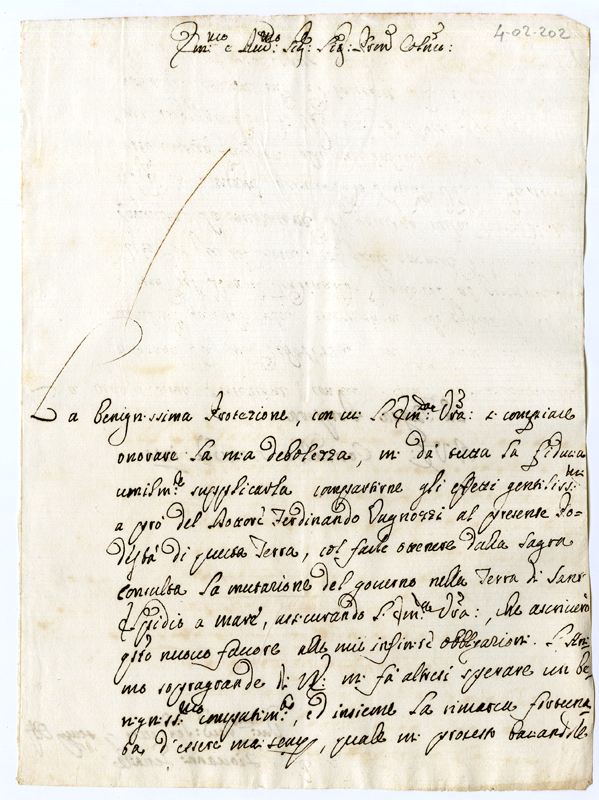 4-02-202
Em:mo e Rmo: Sig: Sig: Pron: Colmo:
La benignissima Protezione, con cui l'Em:za Vra: si compiace
onorare la mia debolezza, mi dà tutta la fiducia
umilm:te supplicarla compartirne gli effetti gentiliss:mi
a prò del Dottore Ferdinando Vagnozzi al presente Po=
destà di questa Terra, col farle ottenere dalla Sagra
Consulta la mutazione del governo nella Terra di Sant
Elpidio a mare, assicurando l'Em:za Vra:, che ascriverò
qsto nuovo favore alle mie infinite obbligazioni. L'ani
mo sopragrande di V.E: mi fà altresi sperare un be
nigniss:mo compatim:to, ed insieme la rimarca fortuna
ta d'essere mai sempre, quale mi protesto baciandole